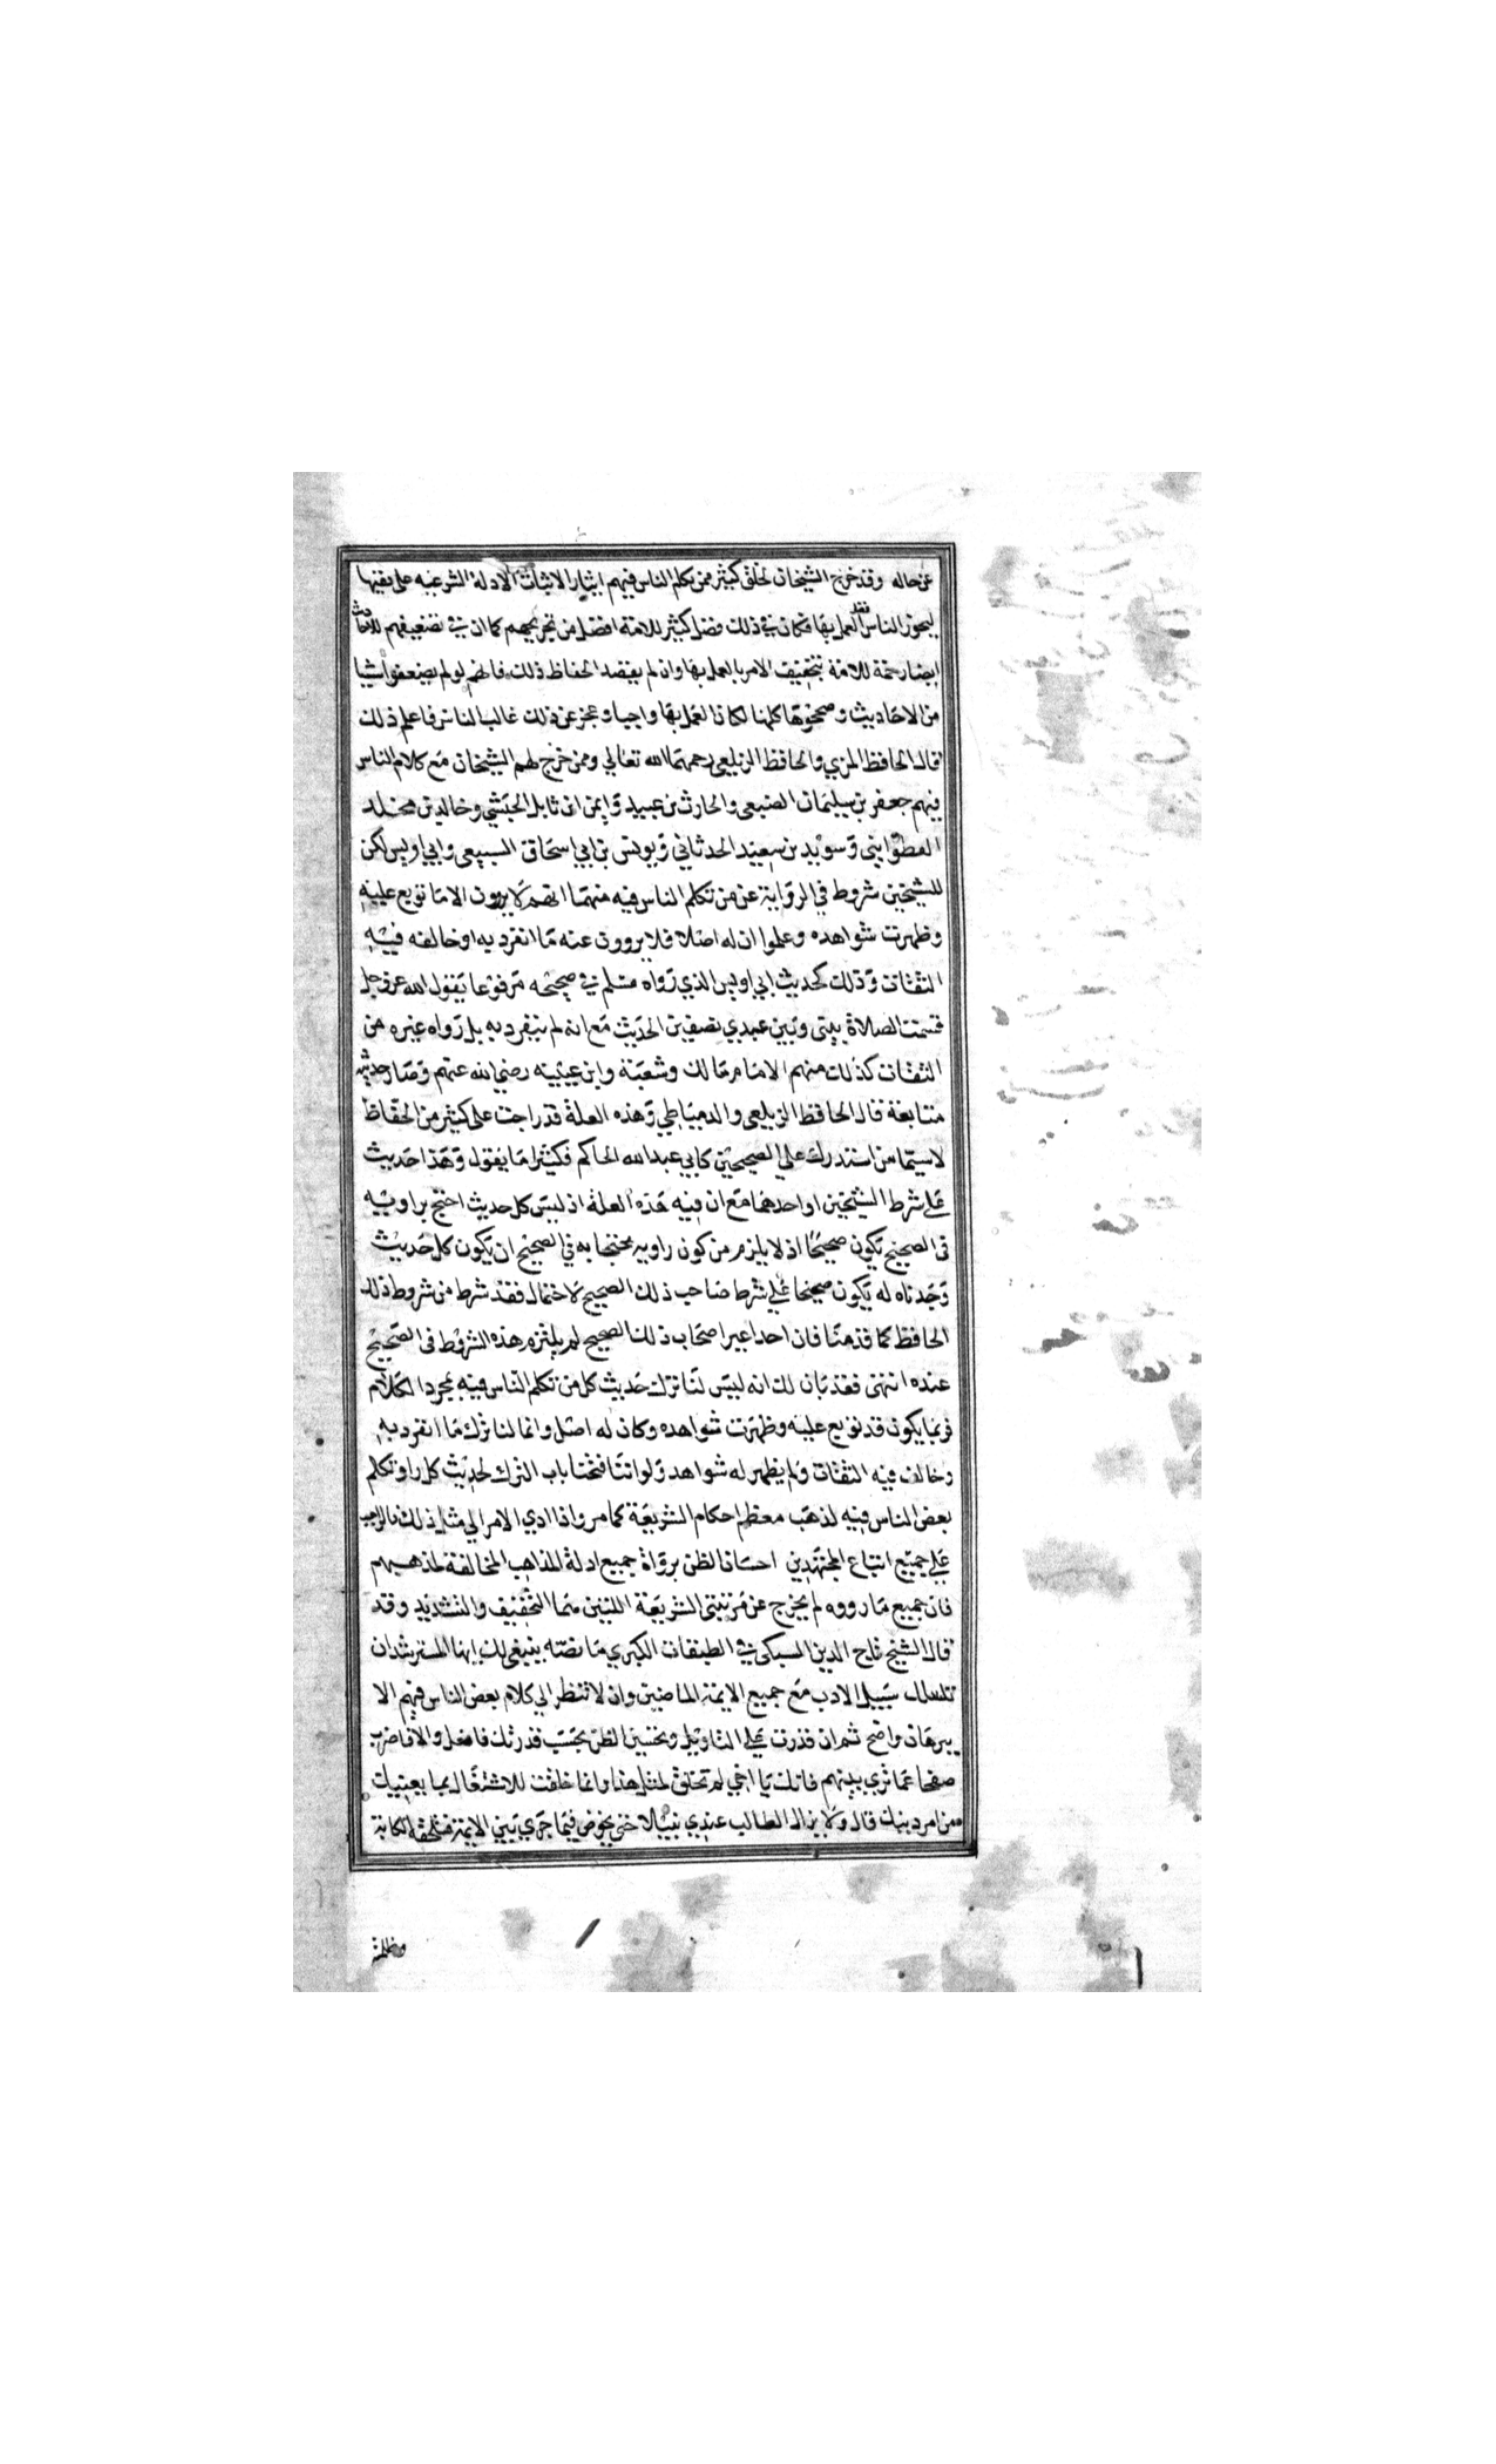 عن حاله وقد خرج الشيخان لخلق كثير ممن تكلم الناس فيهم ايثارا لاثبات الادلة الشرعية على نفيها
ليحوز الناس فضل العمل بها فكان في ذلك فضل كثير للامة افضل من تجريحهم كما ان في تضعيفهم للاحاديث
ايضا رحمة للامة بتخفيف الامر بالعمل بها وان لم يقصد الحفاظ ذلك فانهم لو لم يضعفوا شيا
من الاحاديث وصححوها كلها لكان العمل بها واجبا وعجز عن ذلك غالب الناس فاعلم ذلك
قال الحافظ المزي والحافظ الزيلعي رحمهما الله تعالي وممن خرج لهم الشيخان مع كلام الناس
فيهم جعفر بن سليمان الضبعي والحارث بن عبيد وايمن ابن نابل الحبشي وخالد بن مخلد
القطواني وسويد بن سعيد الحدثاني ويونس بن ابي اسحاق السبيعي وابي اويس لكن
للشيخين شروط في الرواية عن من تكلم الناس فيه منها انهم لا يروون الا ما توبع عليه
وظهرت شواهده وعلموا ان له اصلا فلا يروون عنه ما انفرد به او خالفه فيه
الثقات وذلك كحديث ابي اويس الذي رواه مسلم في صحيحه مرفوعا يقول الله عز وجل
قسمت الصلاة بيني وبين عبدي نصفين الحديث مع انه لم ينفرد به بل رواه غيره من
الثقات كذلك منهم الامام مالك وشعبة وابن عيينه رضي الله عنهم وصار حديثه
متابعة قال الحافظ الزيلعي والدمياطي وهذه العلة قد راجت على كثير من الحفاظ
لا سيما من استدرك علي الصحيحين كابي عبد الله الحاكم فكثيرا ما يقول وهذا حديث
علي شرط الشيخين او احدهما مع ان فيه هذه العلة اذ ليس كل حديث احتج براويه
في الصحيح يكون صحيحا اذ لا يلزم من كون راويه محتجا به في الصحيح ان يكون كل حديث
وجدناه له يكون صحيحا علي شرط صاحب ذلك الصحيح لاحتمال فقد شرط من شروط ذلك
الحافظ كما قدمنا فان احدا غير اصحاب ذلك الصحيح لم يلتزم هذه الشروط في الصحيح
عنده انتهى فقد بان لك انه ليس لنا ترك حديث كل من تكلم الناس فيه بمجرد الكلام
فربما يكون قد توبع عليه وظهرت شواهده وكان له اصل وانما لنا ترك ما انفرد به
وخالف فيه الثقات ولم يظهر له شواهد ولو اننا فتحنا باب الترك لحديث كل راو تكلم
بعض الناس فيه لذهب معظم احكام الشريعة كما مر واذا ادي الامر الي مثل ذلك فالواجب
علي جميع اتباع المجتهدين احسان الظن برواة جميع ادلة المذاهب المخالفة لمذهبهم
فان جميع ما رووه لم يخرج عن مرتبتي الشريعة اللتين هما التخفيف والتشديد وقد
قال الشيخ تاج الدين السبكي في الطبقات الكبري ما نصه ينبغي لك ايها المسترشد ان
تسلك سبيل الادب مع جميع الايمة الماضين وان لا تنظر الي كلام بعض الناس فيهم الا
ببرهان واضح ثم ان قدرت علي التاويل وتحسين الظن بحسب قدرتك فافعل والا فاضرب
صفحا عما تري بينهم فانك يا اخي لم تخلق لمثل هذا وانما خلقت للاشتغال بما يعنيك
من امر دينك قال ولا يزال الطالب عندي نبيلا حتى يخوض فيما جري بين الايمة فتلحقه الكابة
وظلمة